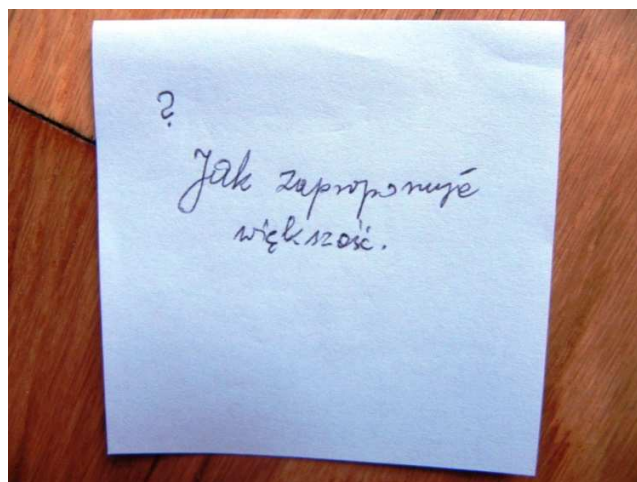 ?
Jak zaproponuje
większość.